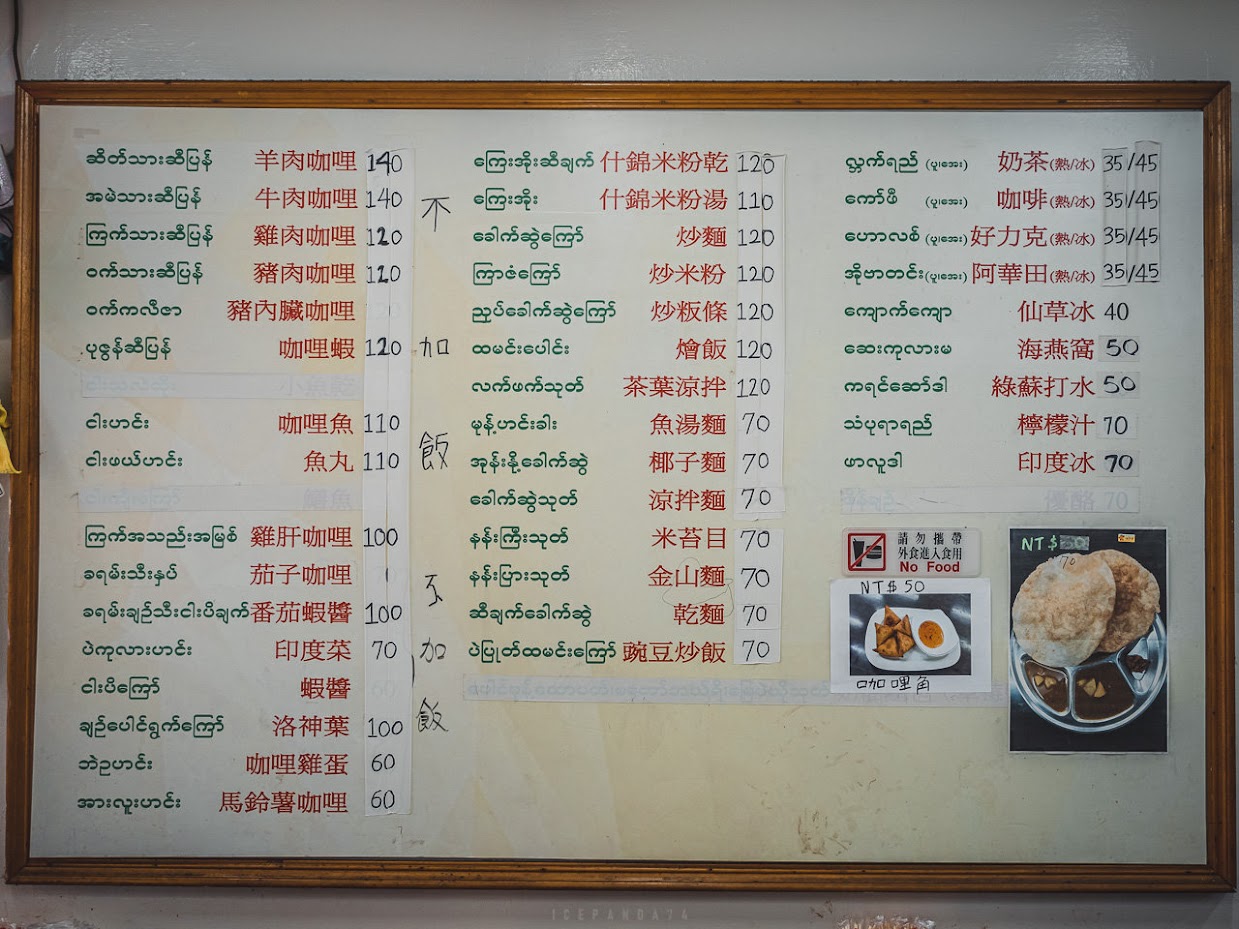 ဆိတ်သားဆီပြန် 羊肉咖哩 140
အမဲသားဆီပြန် 牛肉咖哩 140
ကြက်သားဆီပြန် 雞肉咖哩 120
ဝက်သားဆီပြန် 豬肉咖哩 120
ဝက်ကလီဇာ 豬內臟咖哩
ပုဇွန်ဆီပြန် 咖哩蝦 120
小魚乾
ငါးဟင်း 咖哩魚 110
ငါးဖယ်ဟင်း 魚丸 110
鱔魚
ကြက်အသည်းအမြစ် 雞肝咖哩 100
ခရမ်းသီးနှပ် 茄子咖哩
ခရမ်းချဉ်သီးငါးပိချက် 番茄蝦醬 100
ပဲကုလားဟင်း 印度菜 70
ငါးပိကြော် 蝦醬 60
ချဉ်ပေါင်ရွက်ကြော် 洛神葉 100
ဘဲဥဟင်း 咖哩雞蛋 60
အားလူးဟင်း 馬鈴薯咖哩 60
不
加
飯
不
加
飯
ကြေးအိုးဆီချက် 什錦米粉乾 120
ကြေးအိုး 什錦米粉湯 110
ခေါက်ဆွဲကြော် 炒麵 120
ကြာဇံကြော် 炒米粉 120
ညှပ်ခေါက်ဆွဲကြော် 炒粄條 120
ထမင်းပေါင်း 燴飯 120
လက်ဖက်သုတ် 茶葉涼拌 120
မုန့်ဟင်းခါး 魚湯麵 70
အုန်းနို့ခေါက်ဆွဲ 椰子麵 70
ခေါက်ဆွဲသုတ် 涼拌麵 70
နန်းကြီးသုတ် 米苔目 70
နန်းပြားသုတ် 金山麵 70
ဆီချက်ခေါက်ဆွဲ 乾麵 70
ပဲပြုတ်ထမင်းကြော် 豌豆炒飯 70
လ္ဘက်ရည် (ပူ၊အေး) 奶茶(熱/冰) 35/45
ကော်ဖီ (ပူ၊အေး) 咖啡(熱/冰) 35/45
ဟောလစ် (ပူ၊အေး) 好力克(熱/冰) 35/45
အိုဗာတင်း(ပူ၊အေး) 阿華田(熱/冰) 35/45
ကျောက်ကျော 仙草冰 40
ဆေးကုလားမ 海燕窩 50
ကရင်ဆော်ဒါ 綠蘇打水 50
သံပုရာရည် 檸檬汁 70
ဖာလူဒါ 印度冰 70
優酪 70
請勿攜帶
外食進入食用
No Food
NT$50
咖哩角
NT$
70
ICEPANDA74